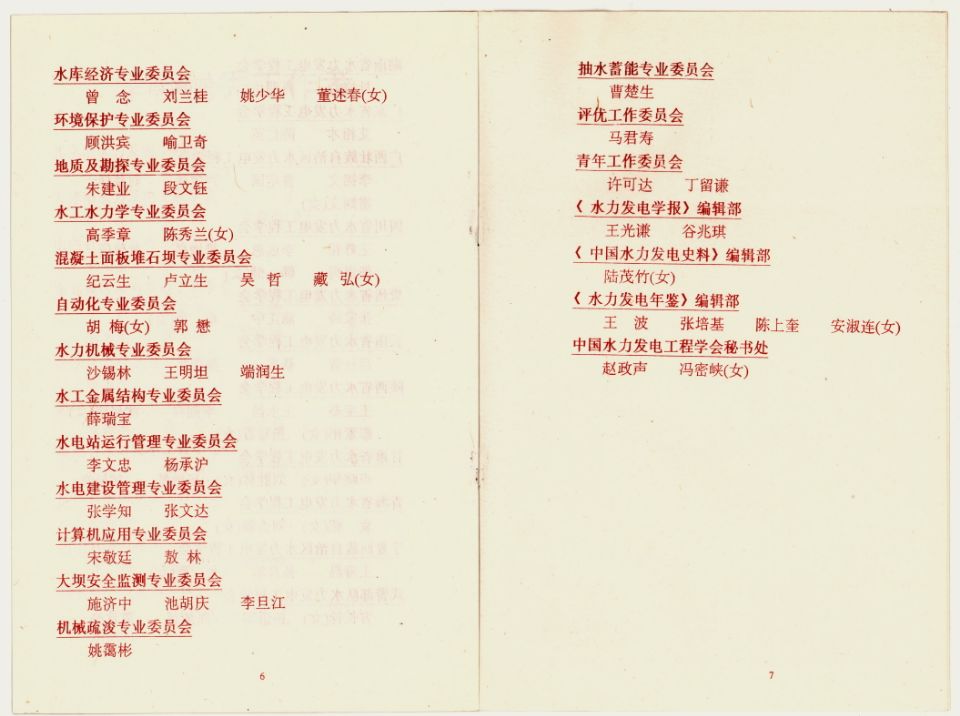 水库经济专业委员会
曾　念　刘兰桂　姚少华　董述春(女)
环境保护专业委员会
顾洪宾　喻卫奇
地质及勘探专业委员会
朱建业　段文钰
水工水力学专业委员会
高季章　陈秀兰(女)
混凝土面板堆石坝专业委员会
纪云生　卢立生　吴　哲　藏　弘(女)
自动化专业委员会
胡　梅(女)　郭　懋
水力机械专业委员会
沙锡林　王明坦　端润生
水工金属结构专业委员会
薛瑞宝
水电站运行管理专业委员会
李文忠　杨承沪
水电建设管理专业委员会
张学知　张文达
计算机应用专业委员会
宋敬廷　敖　林
大坝安全监测专业委员会
施济中　池胡庆　李旦江
机械疏浚专业委员会
姚霭彬
6
抽水蓄能专业委员会
曹楚生
评优工作委员会
马君寿
青年工作委员会
许可达　丁留谦
《水力发电学报》编辑部
王光谦　谷兆琪
《中国水力发电史料》编辑部
陆茂竹(女)
《水力发电年鉴》编辑部
王　波　张培基　陈上奎　安淑连(女)
中国水力发电工程学会秘书处
赵政声　冯密峡(女)
7